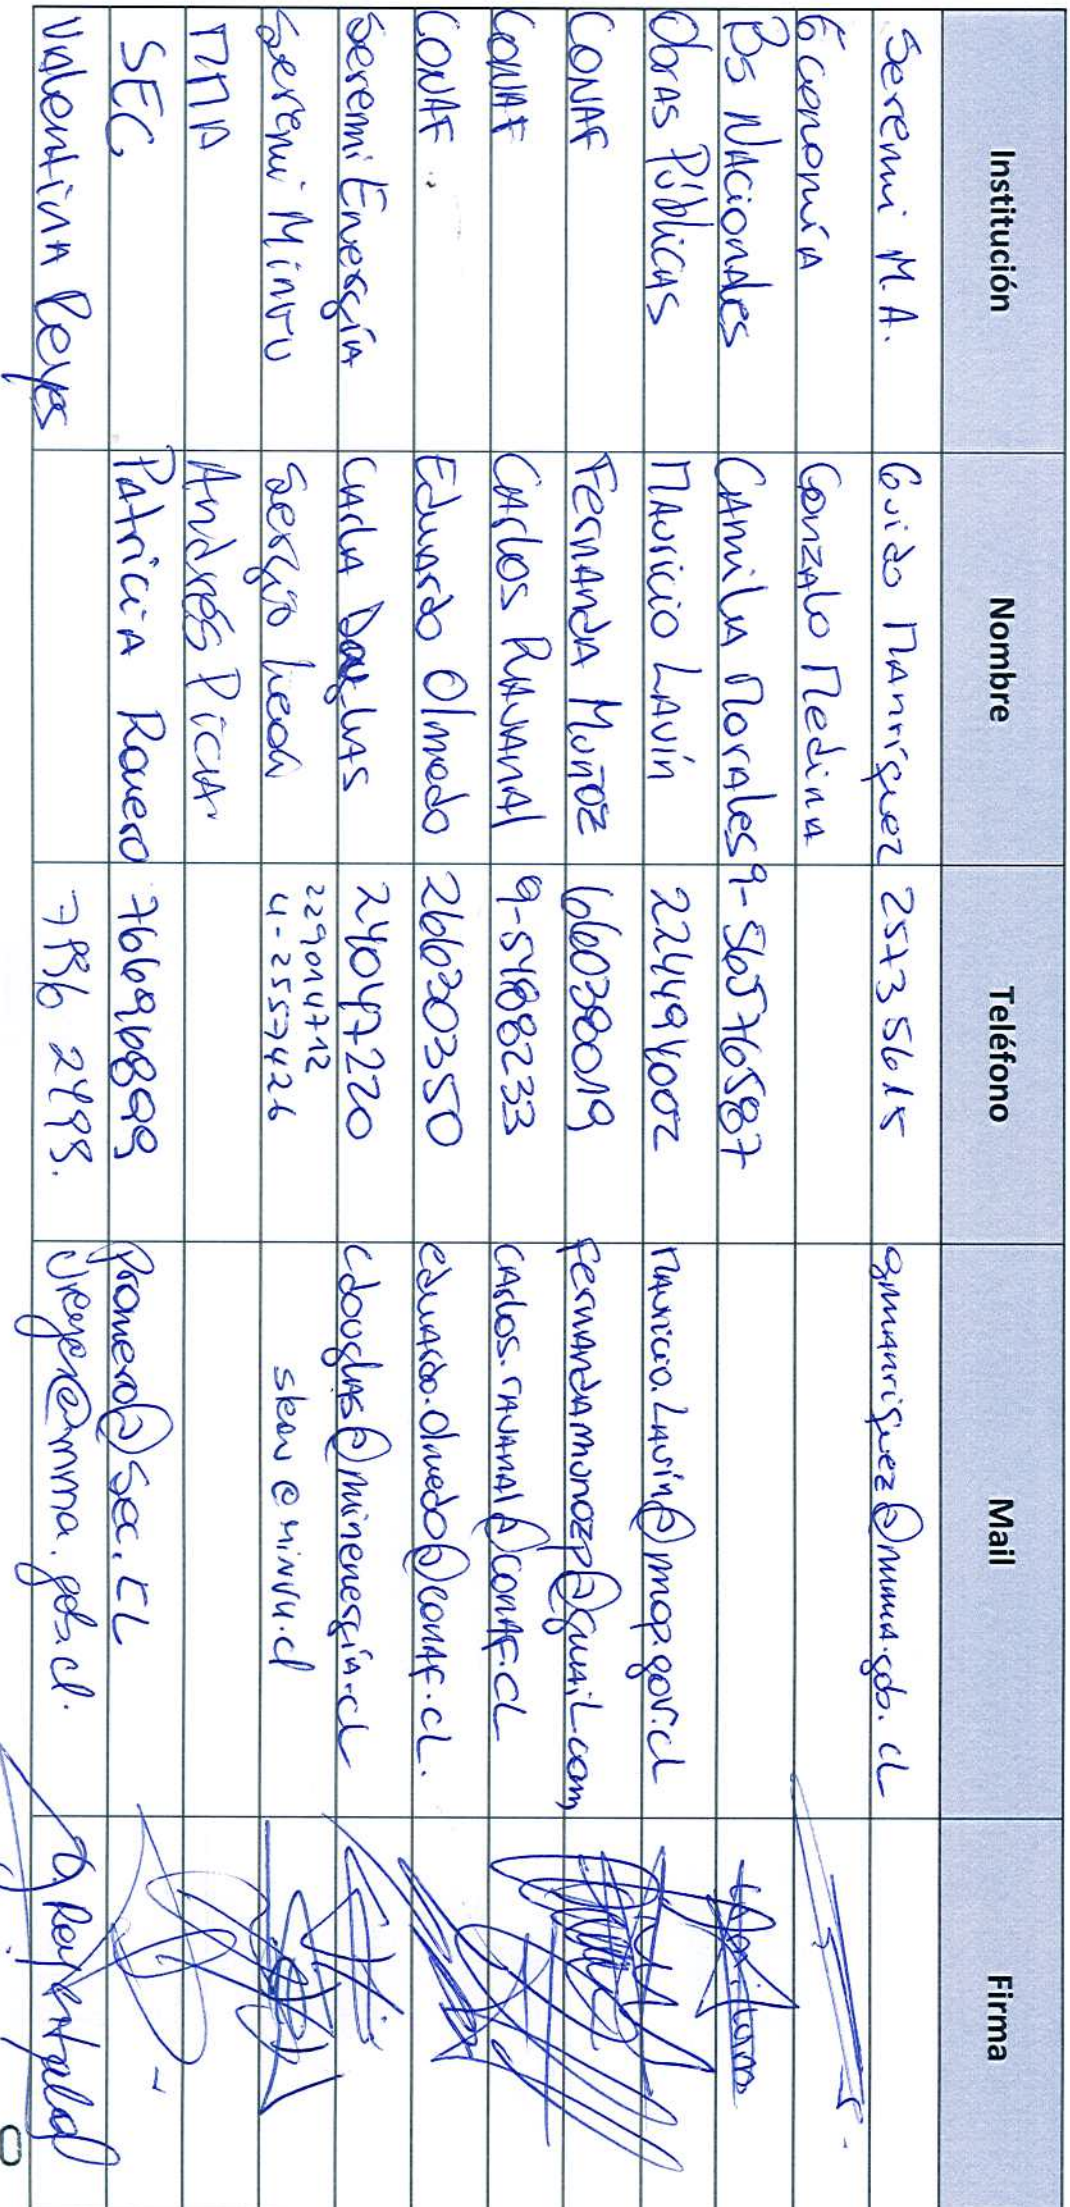 Institución Nombre Teléfono Mail Firma
Seremi M.A. Guido Manríquez 25735615 gmanriquez@mma.gob.cl
Economía Gonzalo Medina
Bs Nacionales Camila Morales 9-56576587
Obras Públicas Mauricio Lavín 224494002 mauricio.Lavin@mop.gov.cl
CONAF Fernanda Muñoz 66038019 Fernandamunozp@gmail.com
CONAF Carlos Ravanal 9-5488233 carlos.ravanal@conaf.cl
CONAF. Eduardo Olmedo 266300350 eduardo.olmedo@conaf.cl.
Seremi Energía Carla Douglas 24047220 cdouglas@minenergía.cl
229014712
Seremi Minvu Sergio 4-2557426 @minvu.cl
MMA Andrés Pica
SEC Patricia Romero 76696899 Promero@sec.CL
Valentina Reyes 2498. @mma.gob.cl.